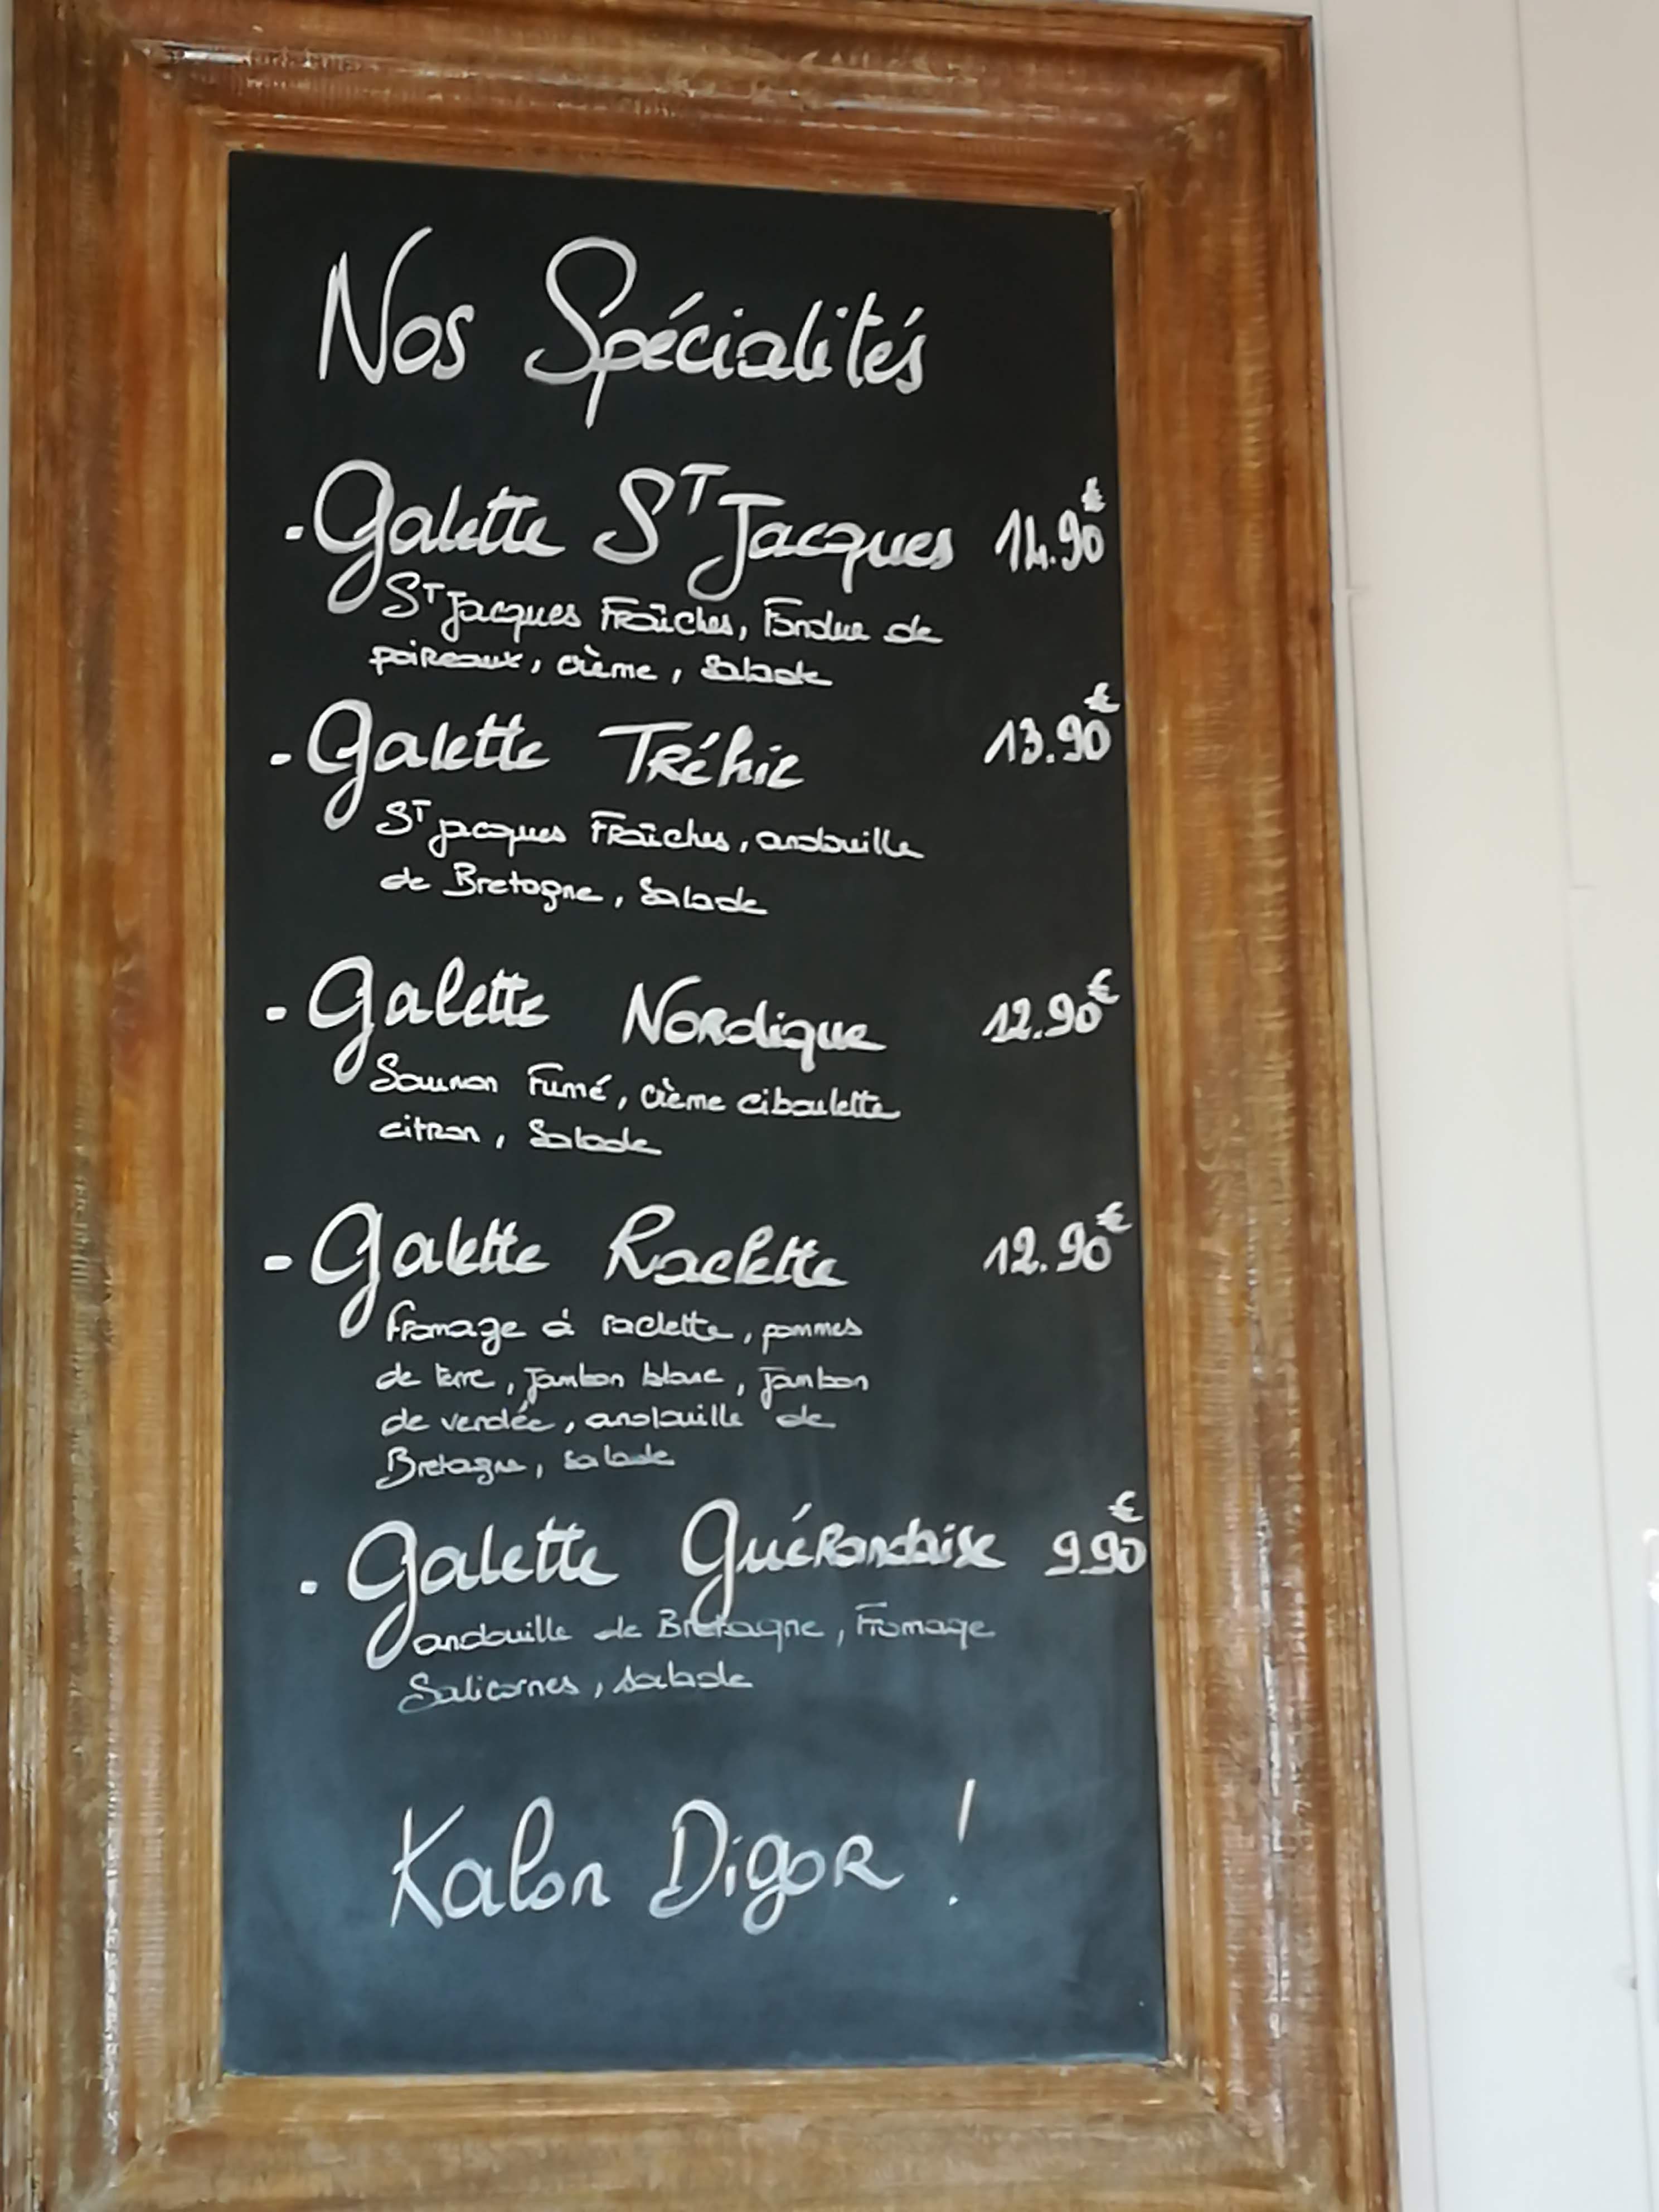 Nos Spécialités
- Galette ST Jacques 14.90€
ST Jacques Fraîches, Fondue de
poireaux, crème, salade
- Galette Tréhic 13.90€
ST jacques Fraîches, andouille
de Bretagne, Salade
- Galette Nordique 12.90€
Saumon Fumé, crème ciboulette
citron, Salade
- Galette Raclette 12.90€
fromage à raclette, pommes
de terre, jambon blanc, jambon
de vendée, andouille de
Bretagne, salade
- Galette Guérandaise 9.90€
andouille de Bretagne, Fromage
Salicornes, salade
Kalon Digor !